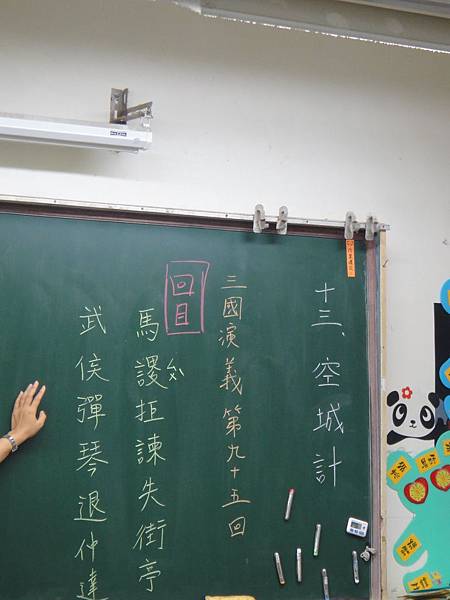 十三、空城計
三國演義第九十五回
回目
馬謖拒諫失街亭
ㄙㄨˋ
武侯彈琴退仲達